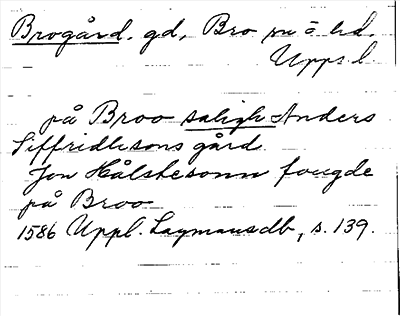 Brogård. gd, Bro sn o hd.
Upps. l.
på Broo saligh Anders
Siffridhsons gård.
Jon Hålstesonn fougde
på Broo
1586 Uppl. Lagmansdb, s. 139.